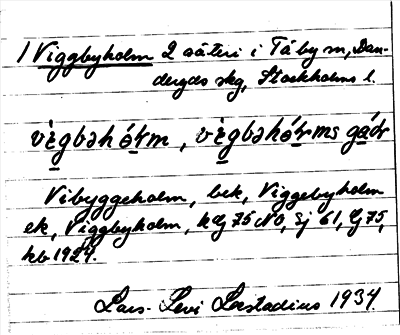 1 Viggbyholm 2 säteri i Täby sn, Dan-
deryds skg, Stockholms l.
vègbəhólm, vègbəhólms gådr
Vibyggeholm, bek, Viggebyholm
ek, Viggbyholm, kg 75 NO, Sj 61, Gj 75,
kb 1924.
Lars-Levi Læstadius 1934.